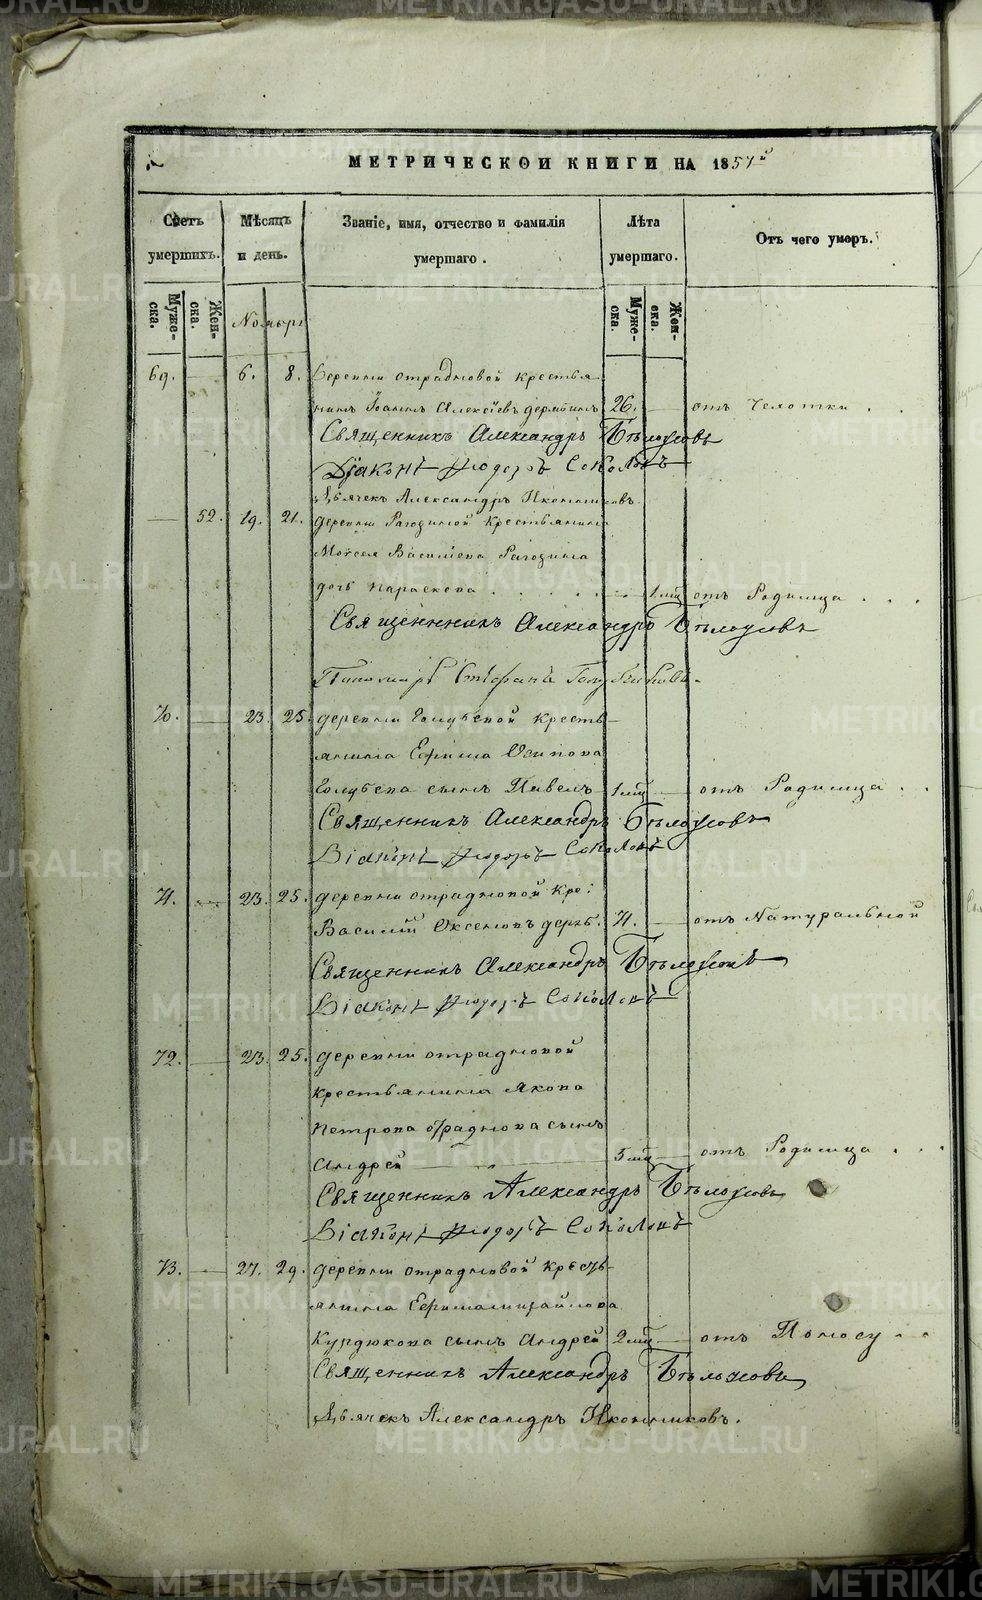 МЕТРИЧЕСКОЙ КНИГИ НА 1851й
Счетъ умершихъ.
Мѣсяцъ и день.
Званіе, имя, отчество и фамилія умершаго.
Лѣта умершаго.
Отъ чего умеръ.
Муже-ска.
Жен-ска.
Ноябрь
Муже-ска.
Жен-ска.
69. — 6. 8. Деревни отрадновой крестья-
нинъ Іоаннъ Алексіевъ 26. — отъ Чахотки . .
Священникъ Александръ Бѣлоусовъ
Діаконъ Ѳеодоръ Соколовъ
Дьячекъ Александръ Иконниковъ.
— 52. 19. 21. деревни Рагозиной Крестьянина
Моисея Василіева Рагозина
дочь Параскева . . . . — 1 мц отъ Родимца . . .
Священникъ Александръ Бѣлоусовъ
Пономарь Стефанъ
70. — 23. 25. деревни Голубевой Кресть-
янина Ефима Осипова
Голубева сынъ Павелъ 1 мц — отъ Родимца . .
Священникъ Александръ Бѣлоусовъ
Діаконъ Ѳеодоръ Соколовъ
71. — 23. 25. деревни отрадновой Кре:
Василій 71. — отъ Натуральной
Священникъ Александръ Бѣлоусовъ
Діаконъ Ѳеодоръ Соколовъ
72. — 23. 25. деревни отрадновой
крестьянина Якова
Петрова отраднова сынъ
Андрей — 3 мц — отъ Родимца . . .
Священникъ Александръ Бѣлоусовъ
Діаконъ Ѳеодоръ Соколовъ
73. — 27. 29. деревни отрадновой Кресть-
янина Ефима михайлова
Курдюкова сынъ Андрей 2 мц — отъ Поносу . .
Священникъ Александръ Бѣлоусовъ
Дьячекъ Александръ Иконниковъ.
METRIKI.GASO-URAL.RU